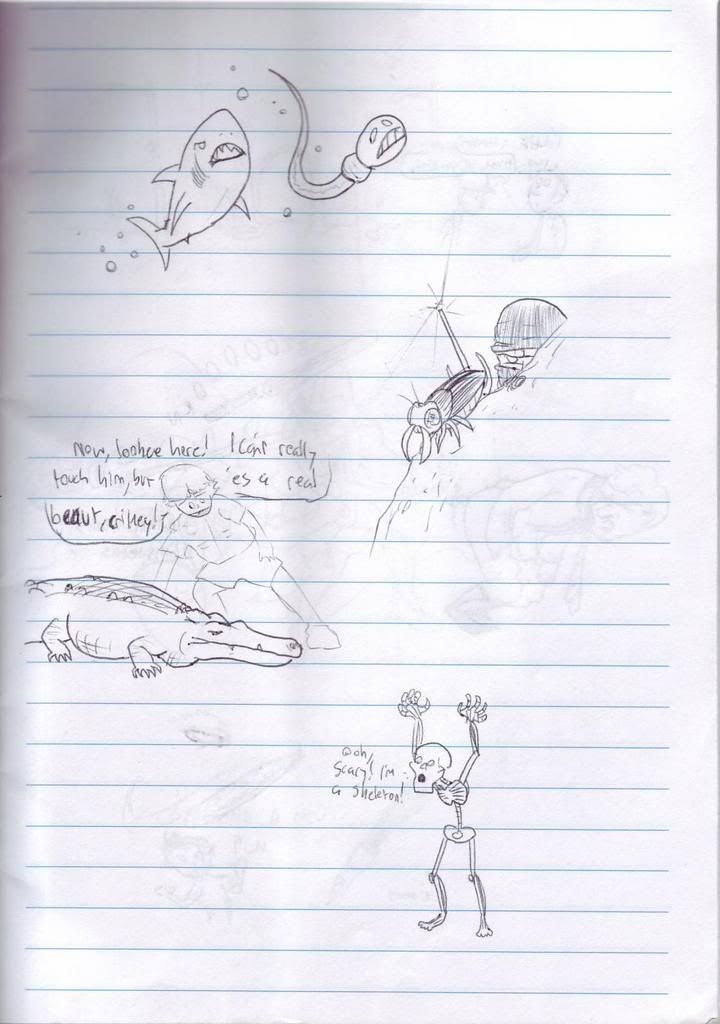 Now, lookee here! I can't really
touch him, but 'es a real
beaut, crikey!
Ooh,
Scary! I'm
a skeleton!